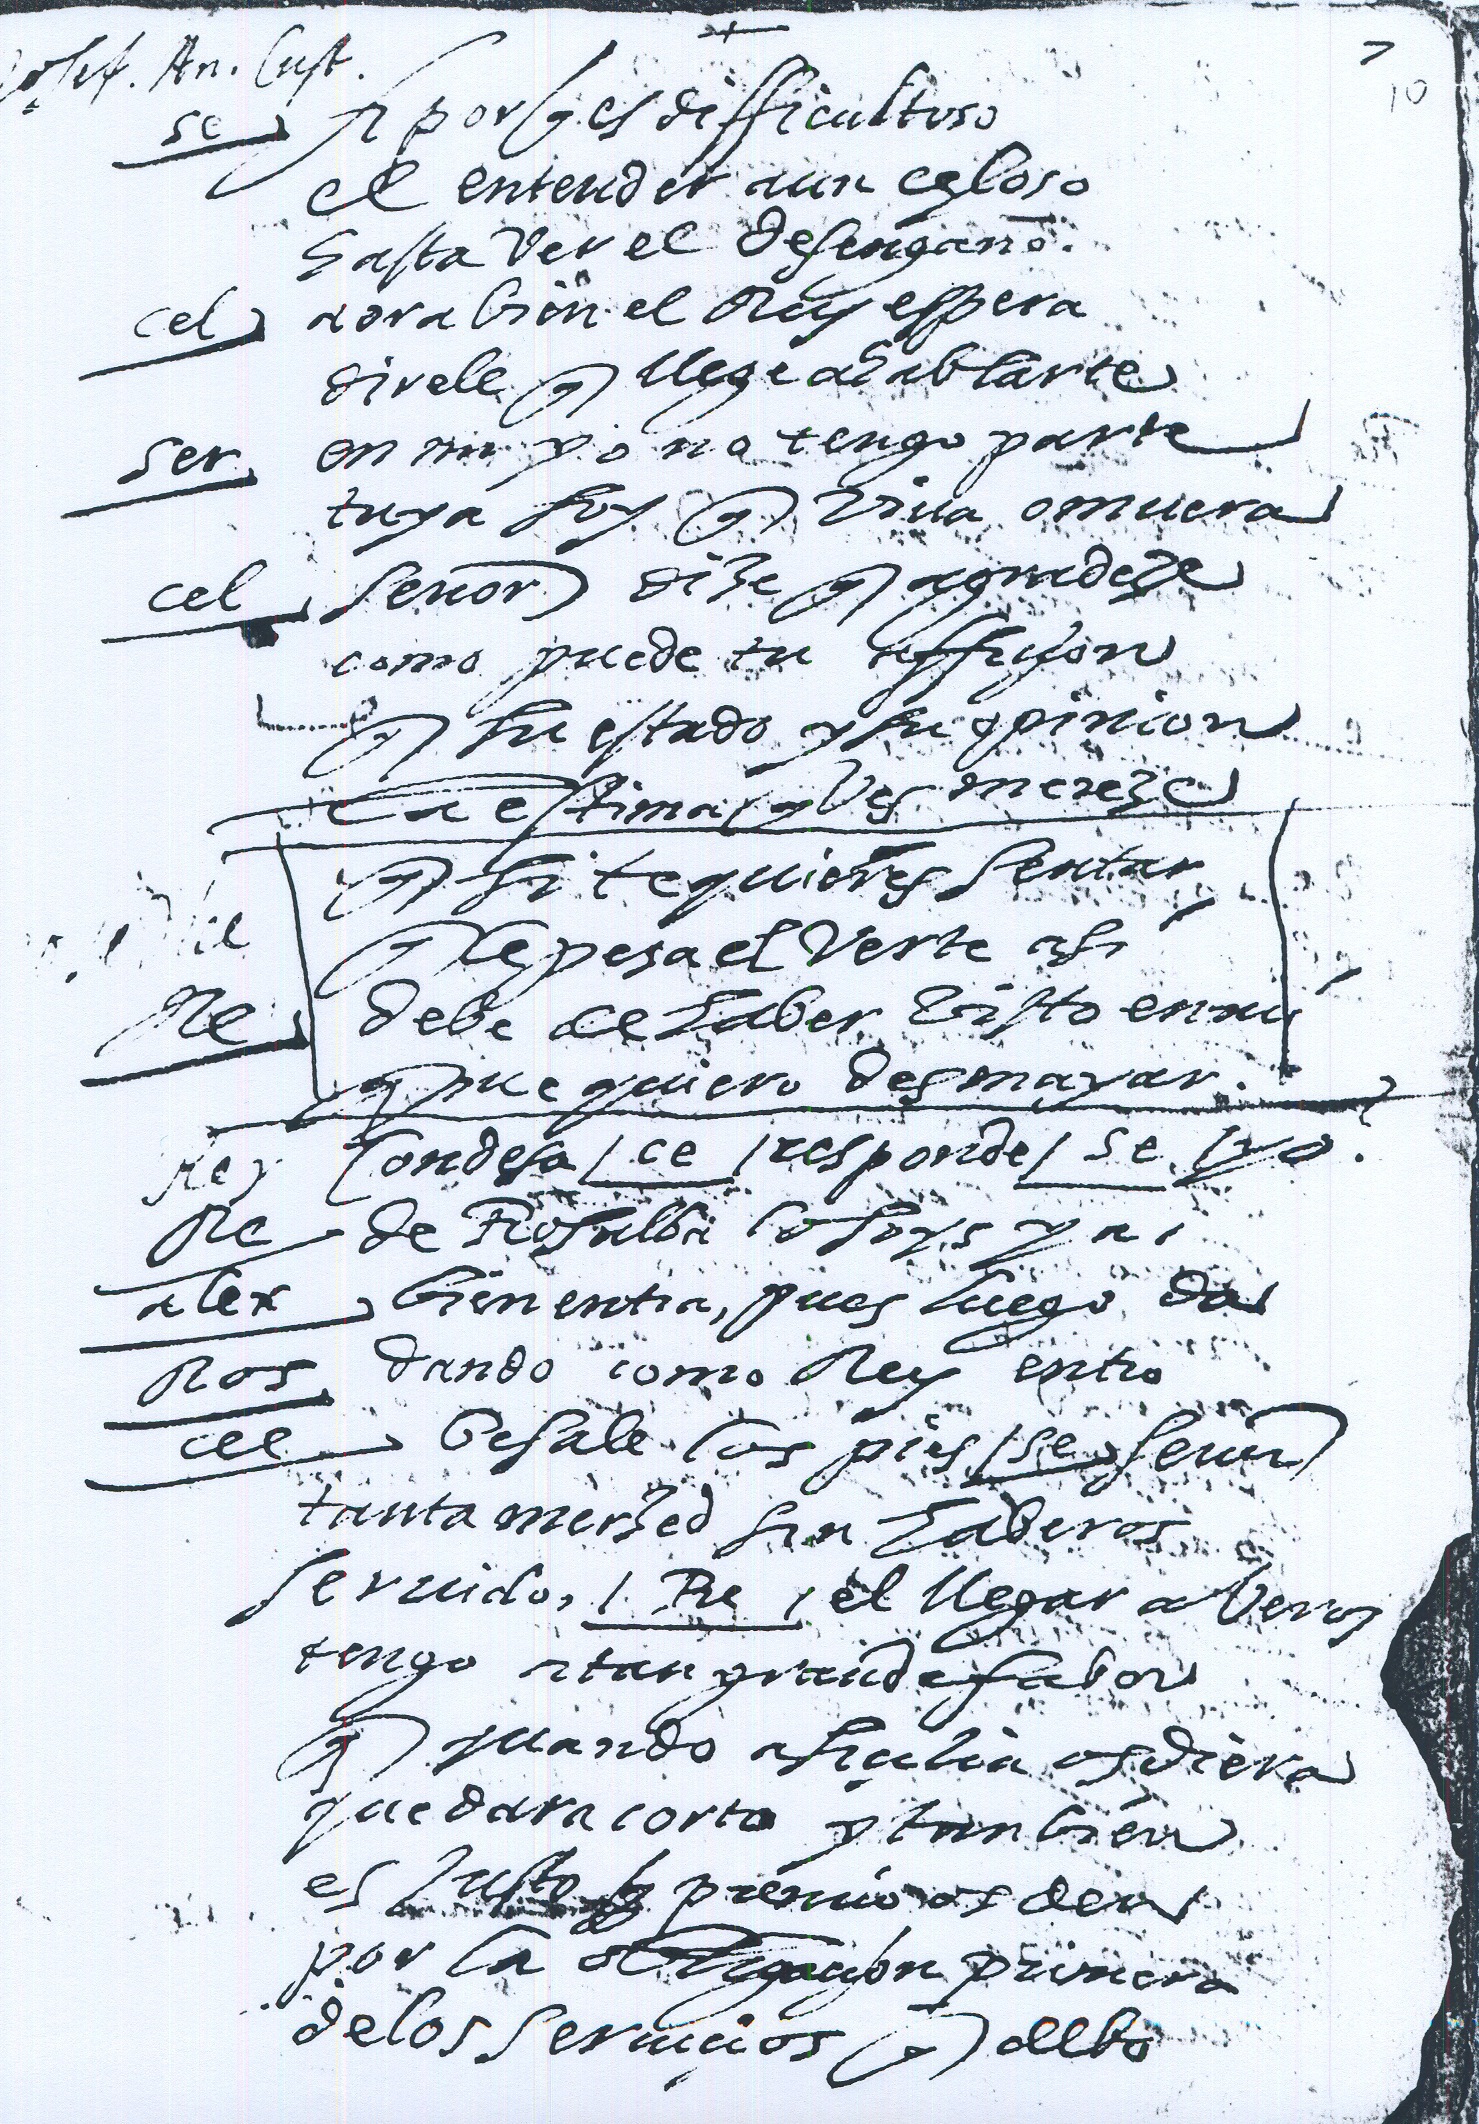 7
10
Josef. An. Cust.
se si porq es difficultoso
el entender a un çeloso
hasta ver el desengano.
cel aora bien el Rey espera
direle q llege a hablarte
ser en mi yo no tengo parte
tuya soy q viua o muera
cel señor dize q agradeze
como puede tu affiçion
q su estado y su opinion
la estima y bes mereze
q si te quieres sentar
q le pesa el verte asi
Re debe de haber visto en mi
q me quiero desmayar.
Rey Condesa / ce / responde / se / yo.
Re de Rosalba lo soys ya.
alex bien entra, pues luego da
Ros dando como Rey entro
cel besale los pies / se señor
tanta merzed sin haberos
seruido, / Re / el llegar a veros
tengo a tan grande fabor
q quando a Siçilia os diera
quedara corto y tanbien
es Justo q premio os den
por la obligaçion primera
de los seruiçios q debo